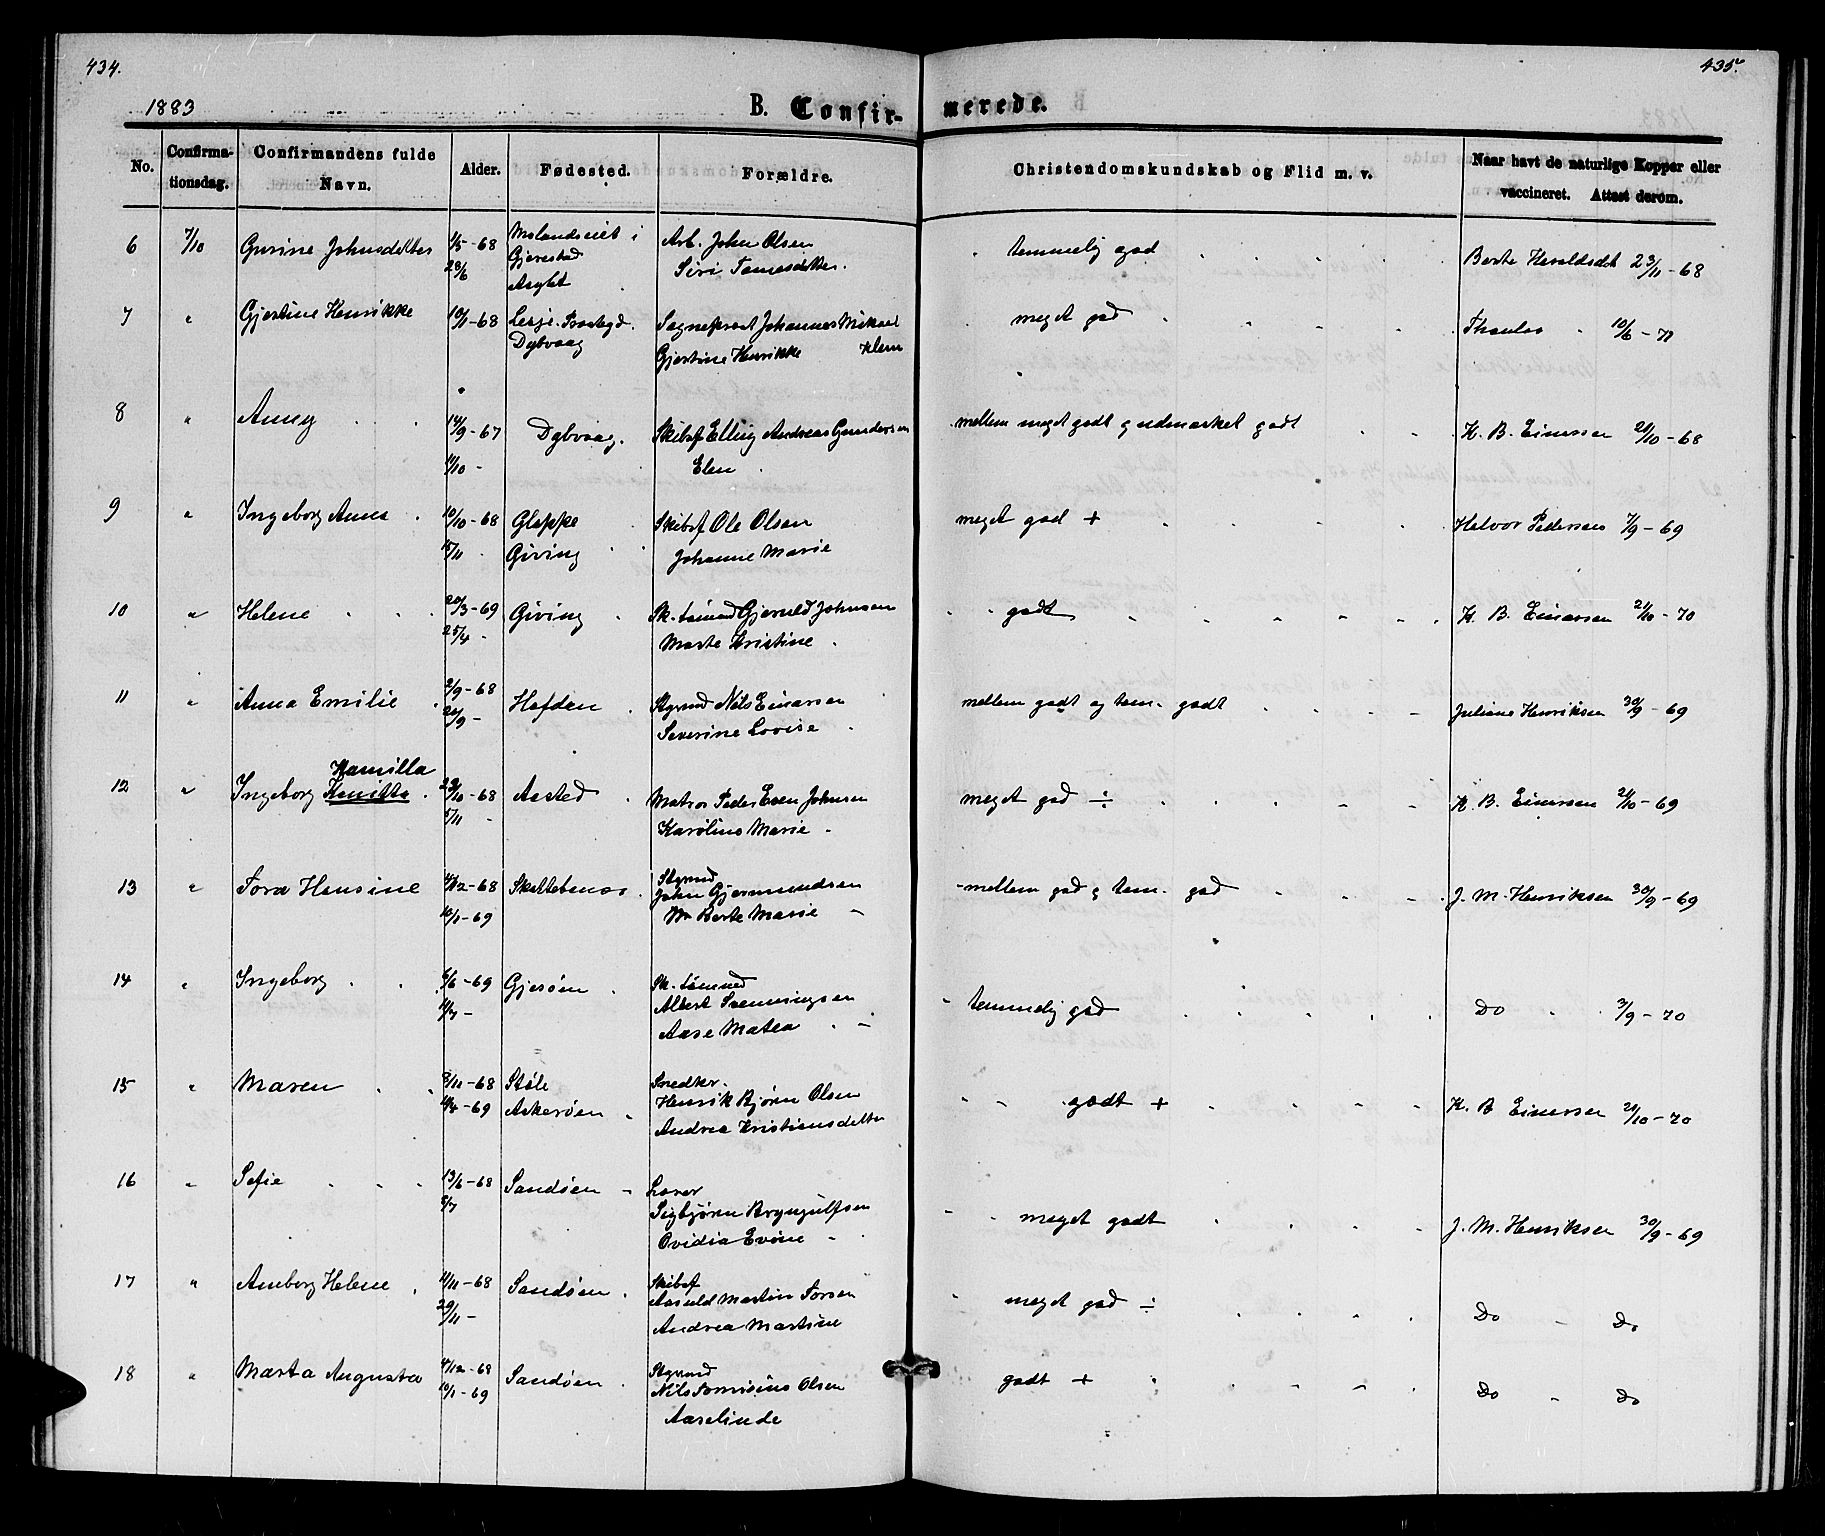 434.
435.
1883
B. Confir-
merede.
No.
Confirma-
tionsdag.
Confirmandens fulde
Navn.
Alder.
Fødested.
Forældre.
Christendomskundskab og Flid m. v.
Naar havt de naturlige Kopper eller
vaccineret. Attest derom.
6 7/10 Gurine Johnsdatter 1/5-68 i Arb. John Olsen temmelig god Berte 23/11-68
28/6 Gjerestad Siri
7 " Gjertine Henrikke 10/11-68 Sognepræst Johannes Mikael meget god 10/6-71
Dybvaag Gjertine Henrikke Klem
8 " Anny 14/9-67 Dybvaag. Skibsf Elling Andreas Gundersen mellem meget godt og udmærket godt K. B. Einersen 21/10-68
Elen
9 " Ingeborg Anna 10/10-68 Gloppe Skibsf Ole Olsen meget god + Halvor Pedersen 7/9-69
15/11 Giving Johanne Marie
10 " Helene 20/3-69 Giving Sk. tømmd Gjeruld Johnsen godt K. B. Einersen 21/10-70
25/4 - Marte Kristine
11 " Anna Emilie 2/9-68 Hafden Styrmd Nils Einarsen mellem godt og tem. godt Juliane Henriksen 30/9-69
Severine Lovise
Hamilla
12 " Ingeborg 29/10-68 Aasted Matros Peder Even Johnsen meget god ÷ K. B. Einersen 21/10-69
5/11 - Karoline Marie
13 " Tora Hansine 4/12-68 Styrmd
John Gjermundsen mellem god og tem. god J. M. Henriksen 30/9-69
10/1-69 Berte Marie
14 " Ingeborg 6/6-69 Gjesøen Sk. tømmd
11/7 - Albert temmelig god Do 3/9-70
Aase Matea
15 " Maren 8/11-68 Støle Snedker
4/4-69 Askerøen Henrik Bjørn Olsen godt + K. B Einersen 21/10-70
Andrea Kristiansdatter
16 " Sofie 13/6-68 Sandøen Lærer
8/7 Sigbjørn Bryngulfsen meget godt J. M. Henriksen 30/9-69
Ovidia Evine
17 " Anborg Helene 11/11-68 Sandøen Skibsf
29/11 - Aanuld Martin Torsen meget god ÷ Do - Do
Andrea Martine
18 " Marta Augusta 4/12-68 Sandøen Styrmd
10/1-69 Nils Tomisius Olsen godt + Do - Do
Aaselinde